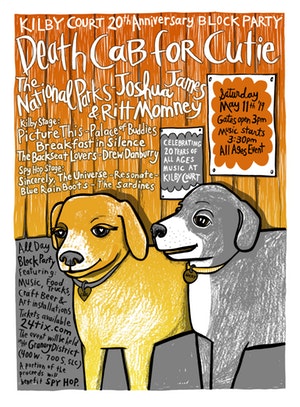 KILBY COURT 20th Anniversary BLOCK PARTY
Death Cab for Cutie
The National Parks Joshua James
& Ritt Momney
Kilby Stage:
Picture This - Palace of Buddies
Breakfast in Silence
The Backseat Lovers - Drew Danbury
Spy Hop Stage:
Sincerely, The Universe - Resonate -
Blue Rain Boots - The Sardines
Saturday
May 11th '19
Gates open 3pm
Music starts
3:30pm
All Ages Event
CELEBRATING
20 YEARS OF
ALL AGES
MUSIC AT
KILBY COURT
All Day
Block Party
Featuring:
Music, Food
Trucks,
Craft Beer &
Art installations
Tickets available
24tix.com
The event will be held
in the Granary District
(400 W. 700 S. SLC)
A portion of the
proceeds will
benefit SPY HOP.